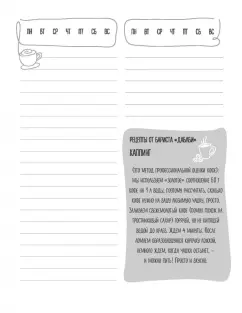 ПН ВТ СР ЧТ ПТ СБ ВС
ПН ВТ СР ЧТ ПТ СБ ВС
РЕЦЕПТЫ ОТ БАРИСТА «ДАБЛБИ»
КАППИНГ
ЭТО МЕТОД ПРОФЕССИОНАЛЬНОЙ ОЦЕНКИ КОФЕ.
МЫ ИСПОЛЬЗУЕМ «ЗОЛОТОЕ» СООТНОШЕНИЕ 60 Г
КОФЕ НА 1 Л ВОДЫ, ПОЭТОМУ РАССЧИТАТЬ, СКОЛЬКО
КОФЕ НУЖНО НА ВАШУ ЛЮБИМУЮ ЧАШКУ, ПРОСТО.
ЗАЛИВАЕМ СВЕЖЕМОЛОТЫЙ КОФЕ
ГОРЯЧЕЙ, НО НЕ КИПЯЩЕЙ
ВОДОЙ ДО КРАЯ. ЖДЕМ 4 МИНУТЫ. ПОСЛЕ
ЛОМАЕМ ОБРАЗОВАВШУЮСЯ КОРОЧКУ ЛОЖКОЙ,
НЕМНОГО ЖДЕМ, КОГДА ЧАШКА ОСТЫНЕТ, –
И МОЖНО ПИТЬ! ПРОСТО И ВКУСНО.